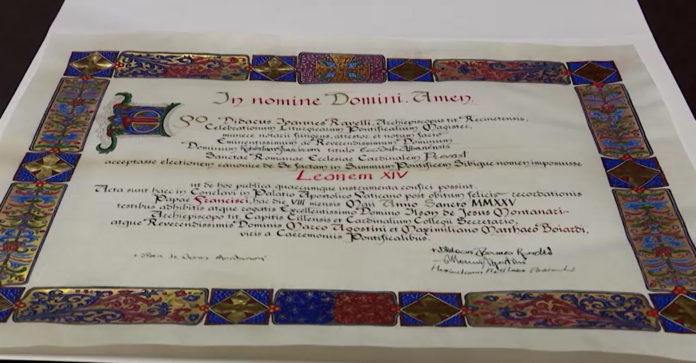 In nomine Domini. Amen.
Ego Didacus Joannes Ravelli, Archiepiscopus tit. Recinetensis,
Celebrationum Liturgicarum Pontificalium Magister,
munere notarii fungens, attestor et notum facio
Eminentissimum ac Reverendissimum Dominum
Dominum titulo
Sanctae Romanae Ecclesiae Cardinalem Prevost
acceptasse electionem canonice de Se factam in Summum Pontificem Sibique nomen imposuisse
Leonem XIV
ut de hoc publica quaecumque instrumenta confici possint.
Acta sunt haec in Conclavi in Palatio Apostolico Vaticano post obitum felicis recordationis
Papae Francisci, hac die VIII mensis Maii Anno Sancto MMXXV
testibus adhibitis atque rogatis Excellentissimo Domino Ilson de Jesus Montanari
Archiepiscopo tit. Capitis Cillensis et Cardinalium Collegii Secretario,
atque Reverendissimis Dominis Marco Agostini et Maximiliano Matthaeo Boiardi,
viris a Caeremoniis Pontificalibus.